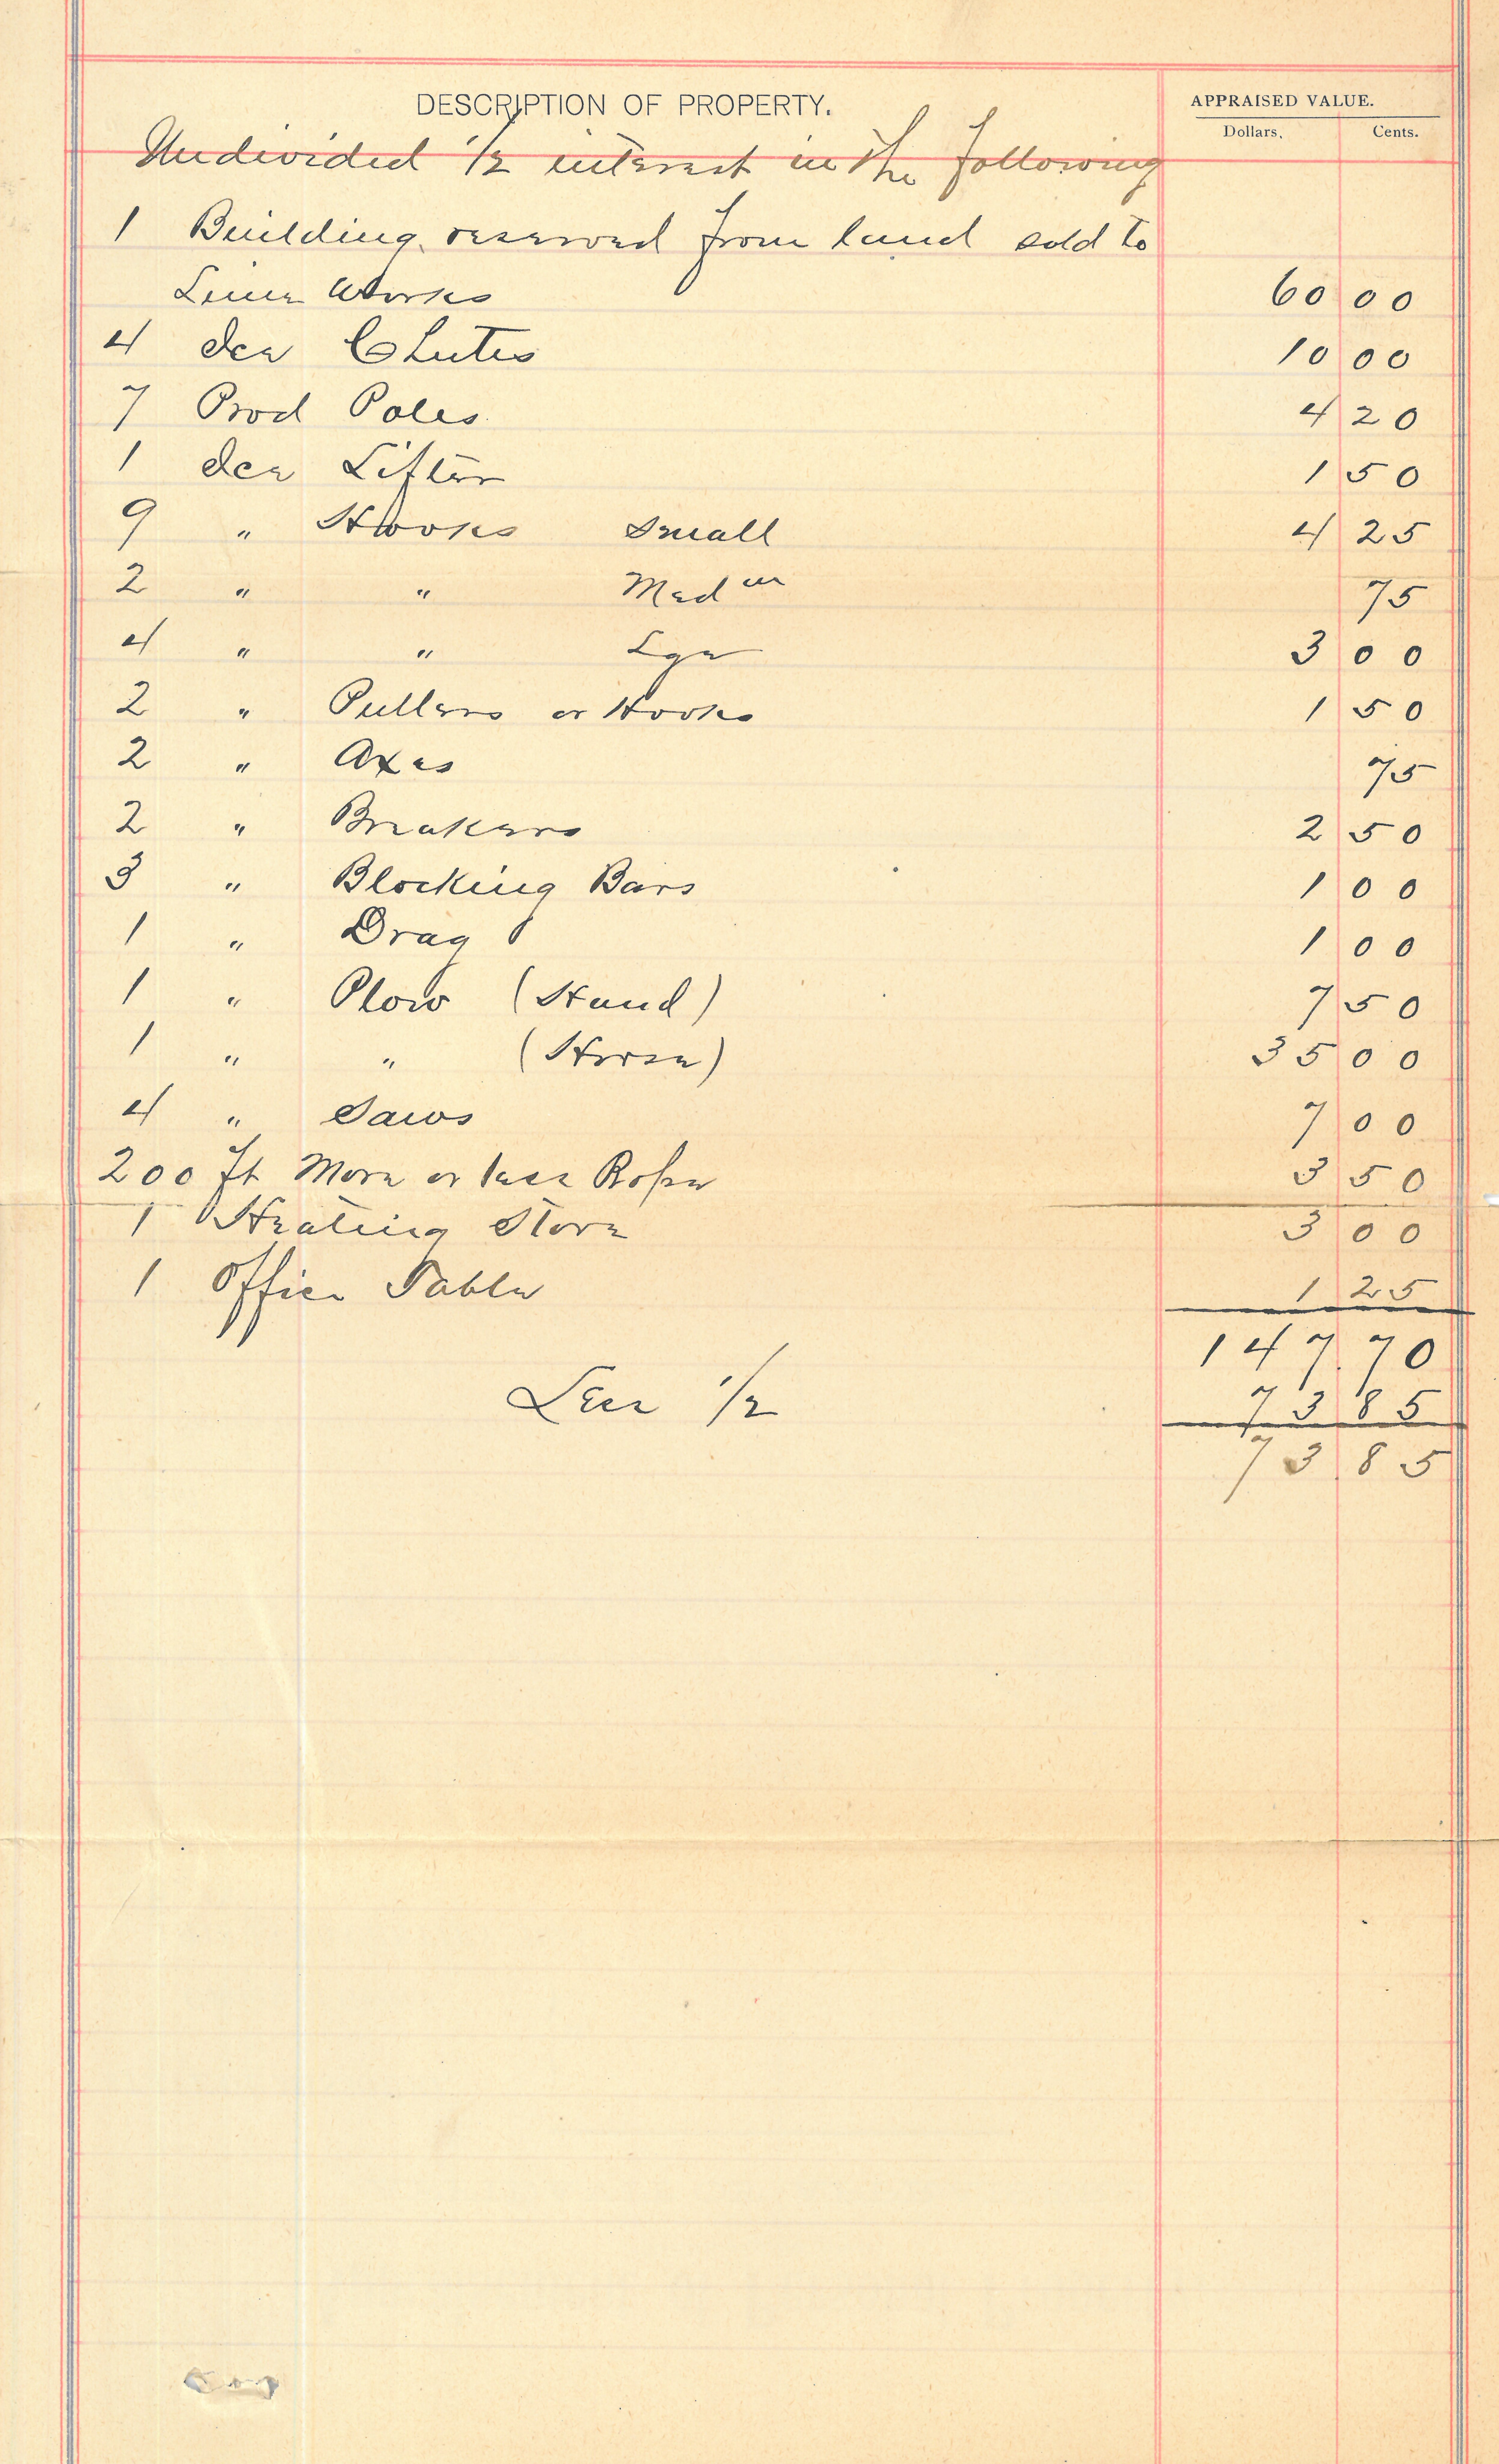 DESCRIPTION OF PROPERTY. APPRAISED VALUE.
Dollars. Cents.
Undivided 1/2 interest in the following
1 Building reserved from land sold to
Lime Works 60 00
4 Ice Chutes 10 00
7 Prod Poles 4 20
1 Ice Lifter 1 50
9 " Hooks Small 4 25
2 " " Med m 75
4 " " Lge 3 00
2 " Pullers or Hooks 1 50
2 " Axes 75
2 " Breakers 2 50
3 " Blocking Bars 1 00
1 " Drag 1 00
1 " Plow (Hand) 7 50
1 " " (Horse) 35 00
4 " Saws 7 00
200 ft More or less Rope 3 50
1 Heating Stove 3 00
1 Office Table 1 25
147.70
Less 1/2 73 85
73 85